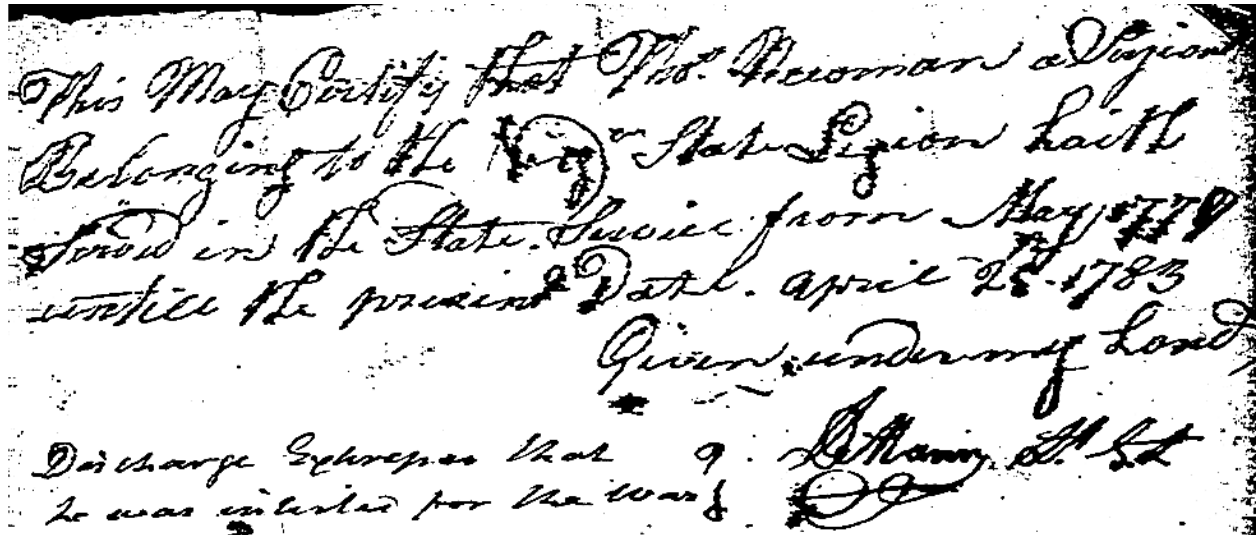 This May Certify that Thos. Newman a Serjeant
Belonging to the Virga State Legion haith
Servd in the State Service from May
untill the present Date. april 25th 1783
Given under my hand
Discharge Expresses that
he was inlisted for the War